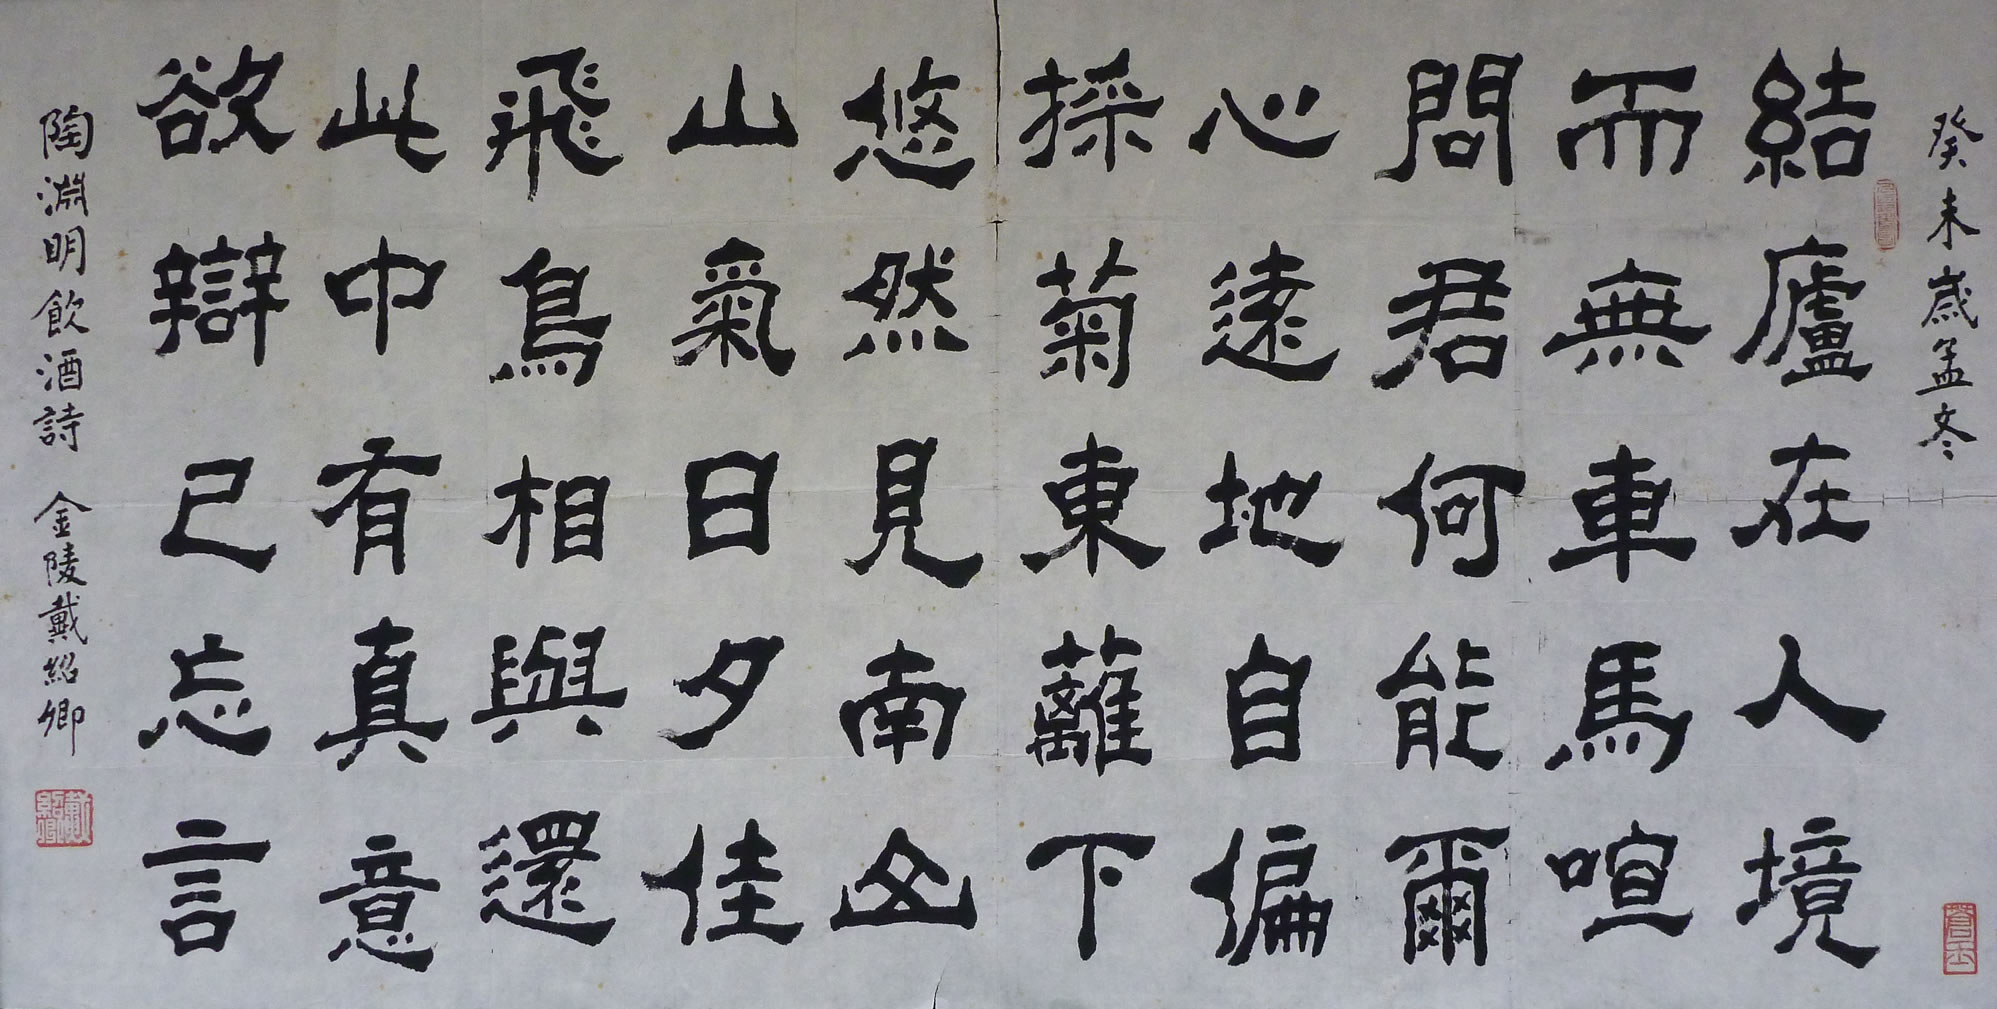 癸未歲孟冬
結廬在人境
而無車馬喧
問君何能爾
心遠地自偏
採菊東蘺下
悠然見南山
山氣日夕佳
飛鳥相與還
此中有真意
欲辯已忘言
陶淵明飲酒詩 金陵戴紹卿
戴紹卿